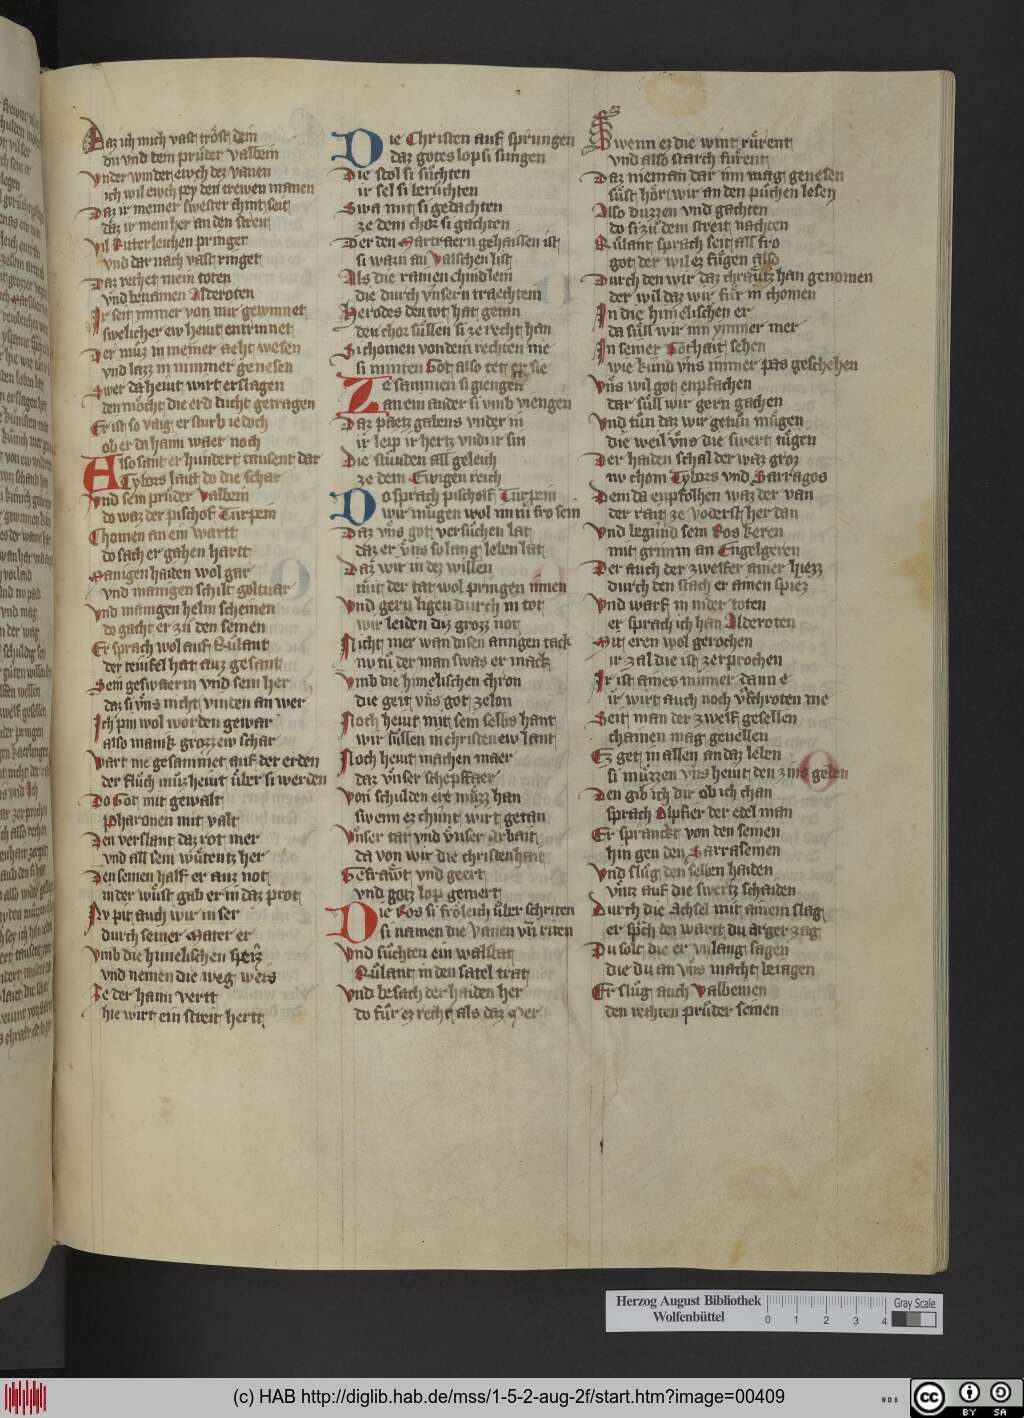 Daz ich mich vast tröst dein
du und dem pruder Valbein
Under winder ewch der vanen
ich wil ewch pey den trewen manen
Daz ir meiner swester chint seit
daz ir mein her an den streit
Vil Ritterleichen pringer
und dar nach vast ringet
Daz rechet mein toten
und benamen Alderoten
Ir seit immer von mir gewinnet
swelicher ew hewt entrinnet
Der müz in meiner aeht wesen
und lazz in nimmer genesen
Swer da hewt wirt erslagen
den möcht die erd lucht getragen
Er ist so vaig er sturb ie doch
ob er da haim waer noch
Also sant er hundert tausent dar
Tybors laut do die schar
Und sein pruder Valbein
do waz der pischof Turpein
Chomen an ein wartt
do sach er gahen hartt
Manigen haiden wol gar
und manigen schilt goltvar
Und manigen helm scheinen
do gacht er zü den seinen
Er sprach wol auf Rülant
der teinfel hat auz gesant
Sein geswaerm und sein her
daz si uns nicht vinden an wer
Ich pin wol worden gewar
also manik grozzew schar
Wart nie gesammet auf der erden
der fluch müz hewt über si werden
Do Got mit gewalt
Pharonen mit valt
Den versant daz rot mer
und all sein wütentz her
Den seinen half er auz not
in der wüst gab er in daz prot
Nv pit auch wir in ser
durch seiner Mater er
Umb die himelischen speiz
und nemen die weg weis
Je der haim vertt
hie wirt ein streit hertt
Die Christen auf sprungen
daz gotes lop si sungen
Die stol si suchten
ir sel si beruchten
Swa mit si gedachten
ze dem chor si gachten
Der den Martraern gehaissen ist
si warn an valschen list
Als die rainen chindlein
die durch unsern traechtein
Herodes den tot hat getan
den chor süllen si ze recht han
Si chomen von dem rechten nie
si minten Got also tet er sie
Ze sammen si giengen
an ein ander si umb viengen
Daz paetz gabens under in
ir leip ir hertz und ir sin
Die stunden all geleich
ze dem Ewigen reich
Do sprach pischolf Turpein
wir mügen wol nun fro sein
Daz uns got versuchen lat
daz er uns so lang leben lat
Daz wir in dez willen
mit der tat wol pringen innen
Und gern ligen durch in tot
wir leiden diz grozz not
Nicht mer wan disen ainigen tack
nv tu der man swas er mack
Umb die himelischen chron
die geit uns got zelon
Noch hewt mit sein selbs hant
wir süllen in christenew lant
Noch hewt machen maer
daz unser schepffaer
Von schulden ere muzz han
swenn ez chunt wirt getan
Unser tat und unser arbait
da von wir die christenhait
Gefrawt und geert
und gotz lop gemert
Die Ros si fröleich über schriten
si namen die vanen un riten
Und suchten ein walstat
Rülant in den satel trat
Und besach der haiden her
do für ez recht als daz Mer
Swenn ez die wint rürent
und also starch fürent
Daz nieman dar inn mag genesen
süst hört wir an den püchen lesen
Also duzzen und gachten
do si zü dem streit nachten
Rülant sprach seit all fro
got der wil ez fügen also
Durch den wir daz chrawtz han genomen
der wil daz wir für in chomen
In die himelischen er
da süll wir inn ymmer mer
In seiner Gothait sehen
wie kund uns nimer paz geschehen
Uns wil got enpfachen
dar süll wir gern gachen
Und tün daz wir getün mügen
die weil uns die swert tügen
Der haiden schal der waz groz
nv chom Tybors und Sarragos
Dem da enpfolhen waz der van
der rait ze vorderst her dan
Und begund sein Ros keren
mit grimm an Engelgeren
Der auch der zwelfer ainer hiezz
durch den stach er ainen spiez
Und warf in nider toten
er sprach ich han Alderoten
Mit eren wol gerochen
ir zal die ist zerprochen
Ir ist aines minner dann e
ir wirt auch noch verschroten me
Seit man der zwelf gesellen
chainen mag geuellen
Ez get in allen an daz leben
si müzzen uns hewt den zins geben
Den gib ich dir ob ich chan
sprach Olpfier der edel man
Er spranckt von den seinen
hin gen den Sarraseinen
Und slug den selben haiden
untz auf die swertz schaiden
Durch die Achsel mit ainem slag
er sprach dez wartt du arger zag
Du solt die er unlang sagen
die du an uns macht beiagen
Er slug auch Valbeinen
den rechten pruder seinen
Herzog August Bibliothek
Wolfenbüttel
0 1 2 3 4
Gray Scale
(c) HAB http://diglib.hab.de/mss/1-5-2-aug-2f/start.htm?image=00409
WDB
cc BY SA